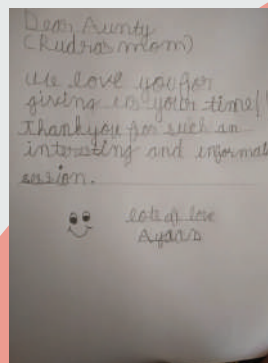 Dear Aunty
(Rudra's mom)
We love you for
giving us your time!
Thankyou for such an
interesting and informat
session.
lots of love
Ayaas